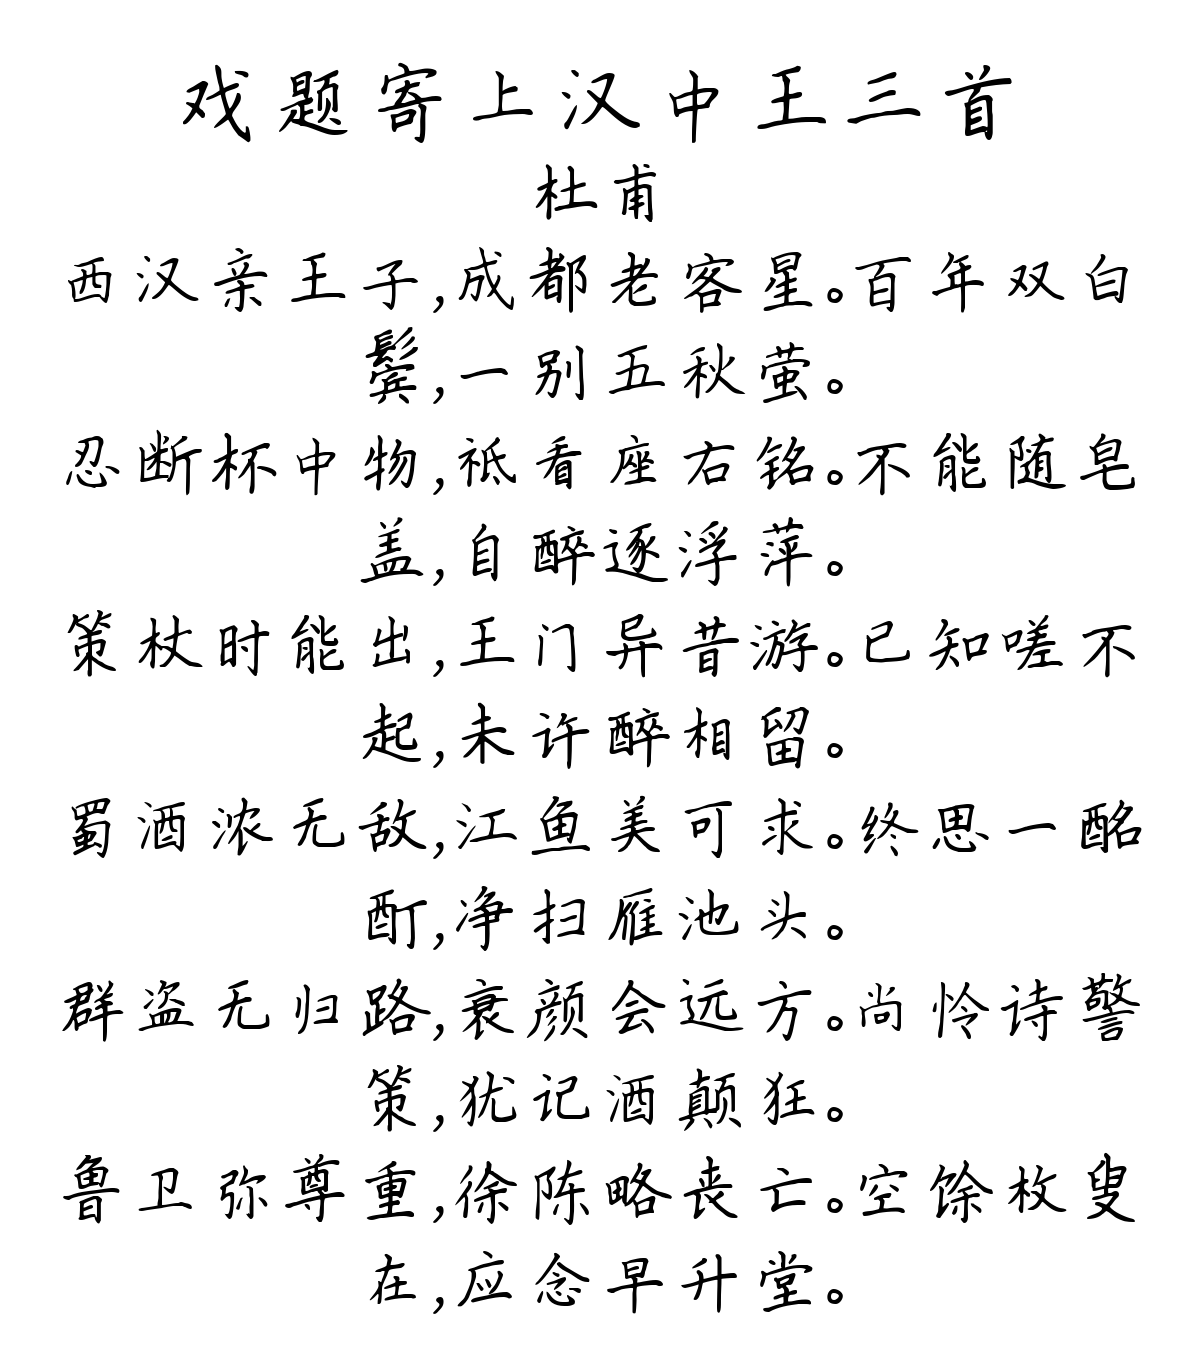 戏题寄上汉中王三首
杜甫
西汉亲王子,成都老客星。百年双白
鬓,一别五秋萤。
忍断杯中物,祗看座右铭。不能随皂
盖,自醉逐浮萍。
策杖时能出,王门异昔游。已知嗟不
起,未许醉相留。
蜀酒浓无敌,江鱼美可求。终思一酩
酊,净扫雁池头。
群盗无归路,衰颜会远方。尚怜诗警
策,犹记酒颠狂。
鲁卫弥尊重,徐陈略丧亡。空馀枚叟
在,应念早升堂。